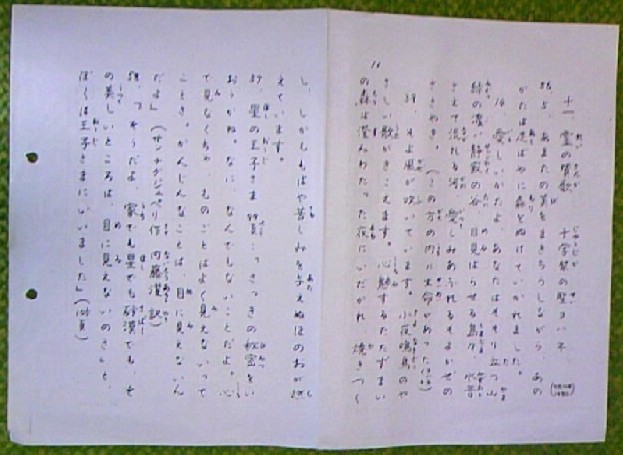 十一、霊の賛歌　十字架の聖ヨハネ
あまたの美をまきちらしながら、あの
かたは足ばやに森をぬけていかれました。
14、愛しいかたよ、あなたはそそり立つ山
緑の濃い静寂の谷、目見はらせる島々、水音
さえて流れる河、愛しみあふれるそよかぜの
ささやき。（この方の内に生命があった
39、そよ風が吹いています。小夜鳴鳥のや
さしい歌がきこえます。心魅するたたずまい
の森は澄みわたった夜にいだかれ、焼きつく
し、しかしもはや苦しみを与えぬほのおが燃
えています。
星の王子さま 99頁…さっきの秘密をい
おうかね。なに、なんでもないことだよ。心
で見なくちゃ、ものごとはよく見えないって
ことさ。かんじんなことは、目に見えないん
だよ」（サンテグジュペリ作 内藤濯 訳）
「そうだよ、家でも星でも砂漠でも、そ
の美しいところは、目に見えないのさ」と、
ぼくは王子さまにいいました」